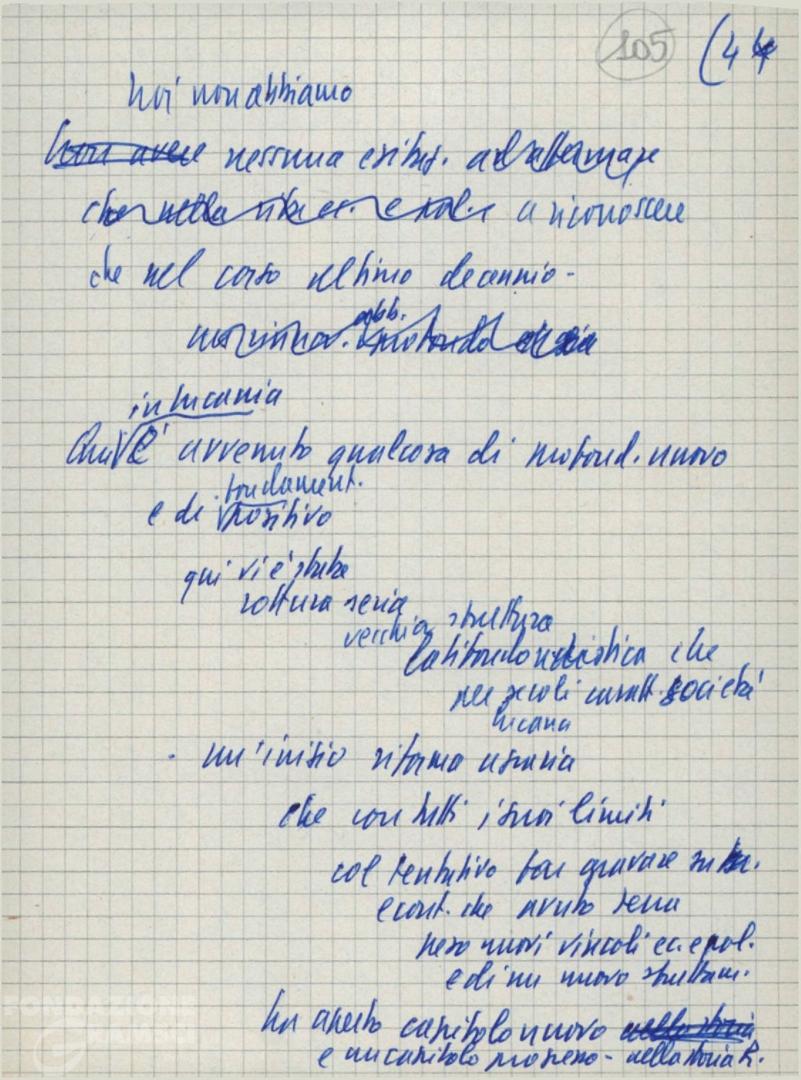 105 (44
Noi non abbiamo
non avere nessuna esitaz. ad affermare
che nella vita ec. e pol. a riconoscere
che nel corso ultimo decennio -
abb.
in Lucania
Qui è avvenuto qualcosa di profond. nuovo
fondament.
e di positivo
qui vi è stata
rottura seria
vecchia struttura
latifondistica che
per secoli caratt. società
lucana
- un'inizio riforma agraria
che con tutti i suoi limiti
col tentativo far gravare su
e cont. che avuto terra
peso nuovi vincoli ec. e pol.
e di un nuovo sfruttam.
ha aperto capitolo nuovo nella storia
e un capitolo progresso - nella storia R.
FONDAZIONE